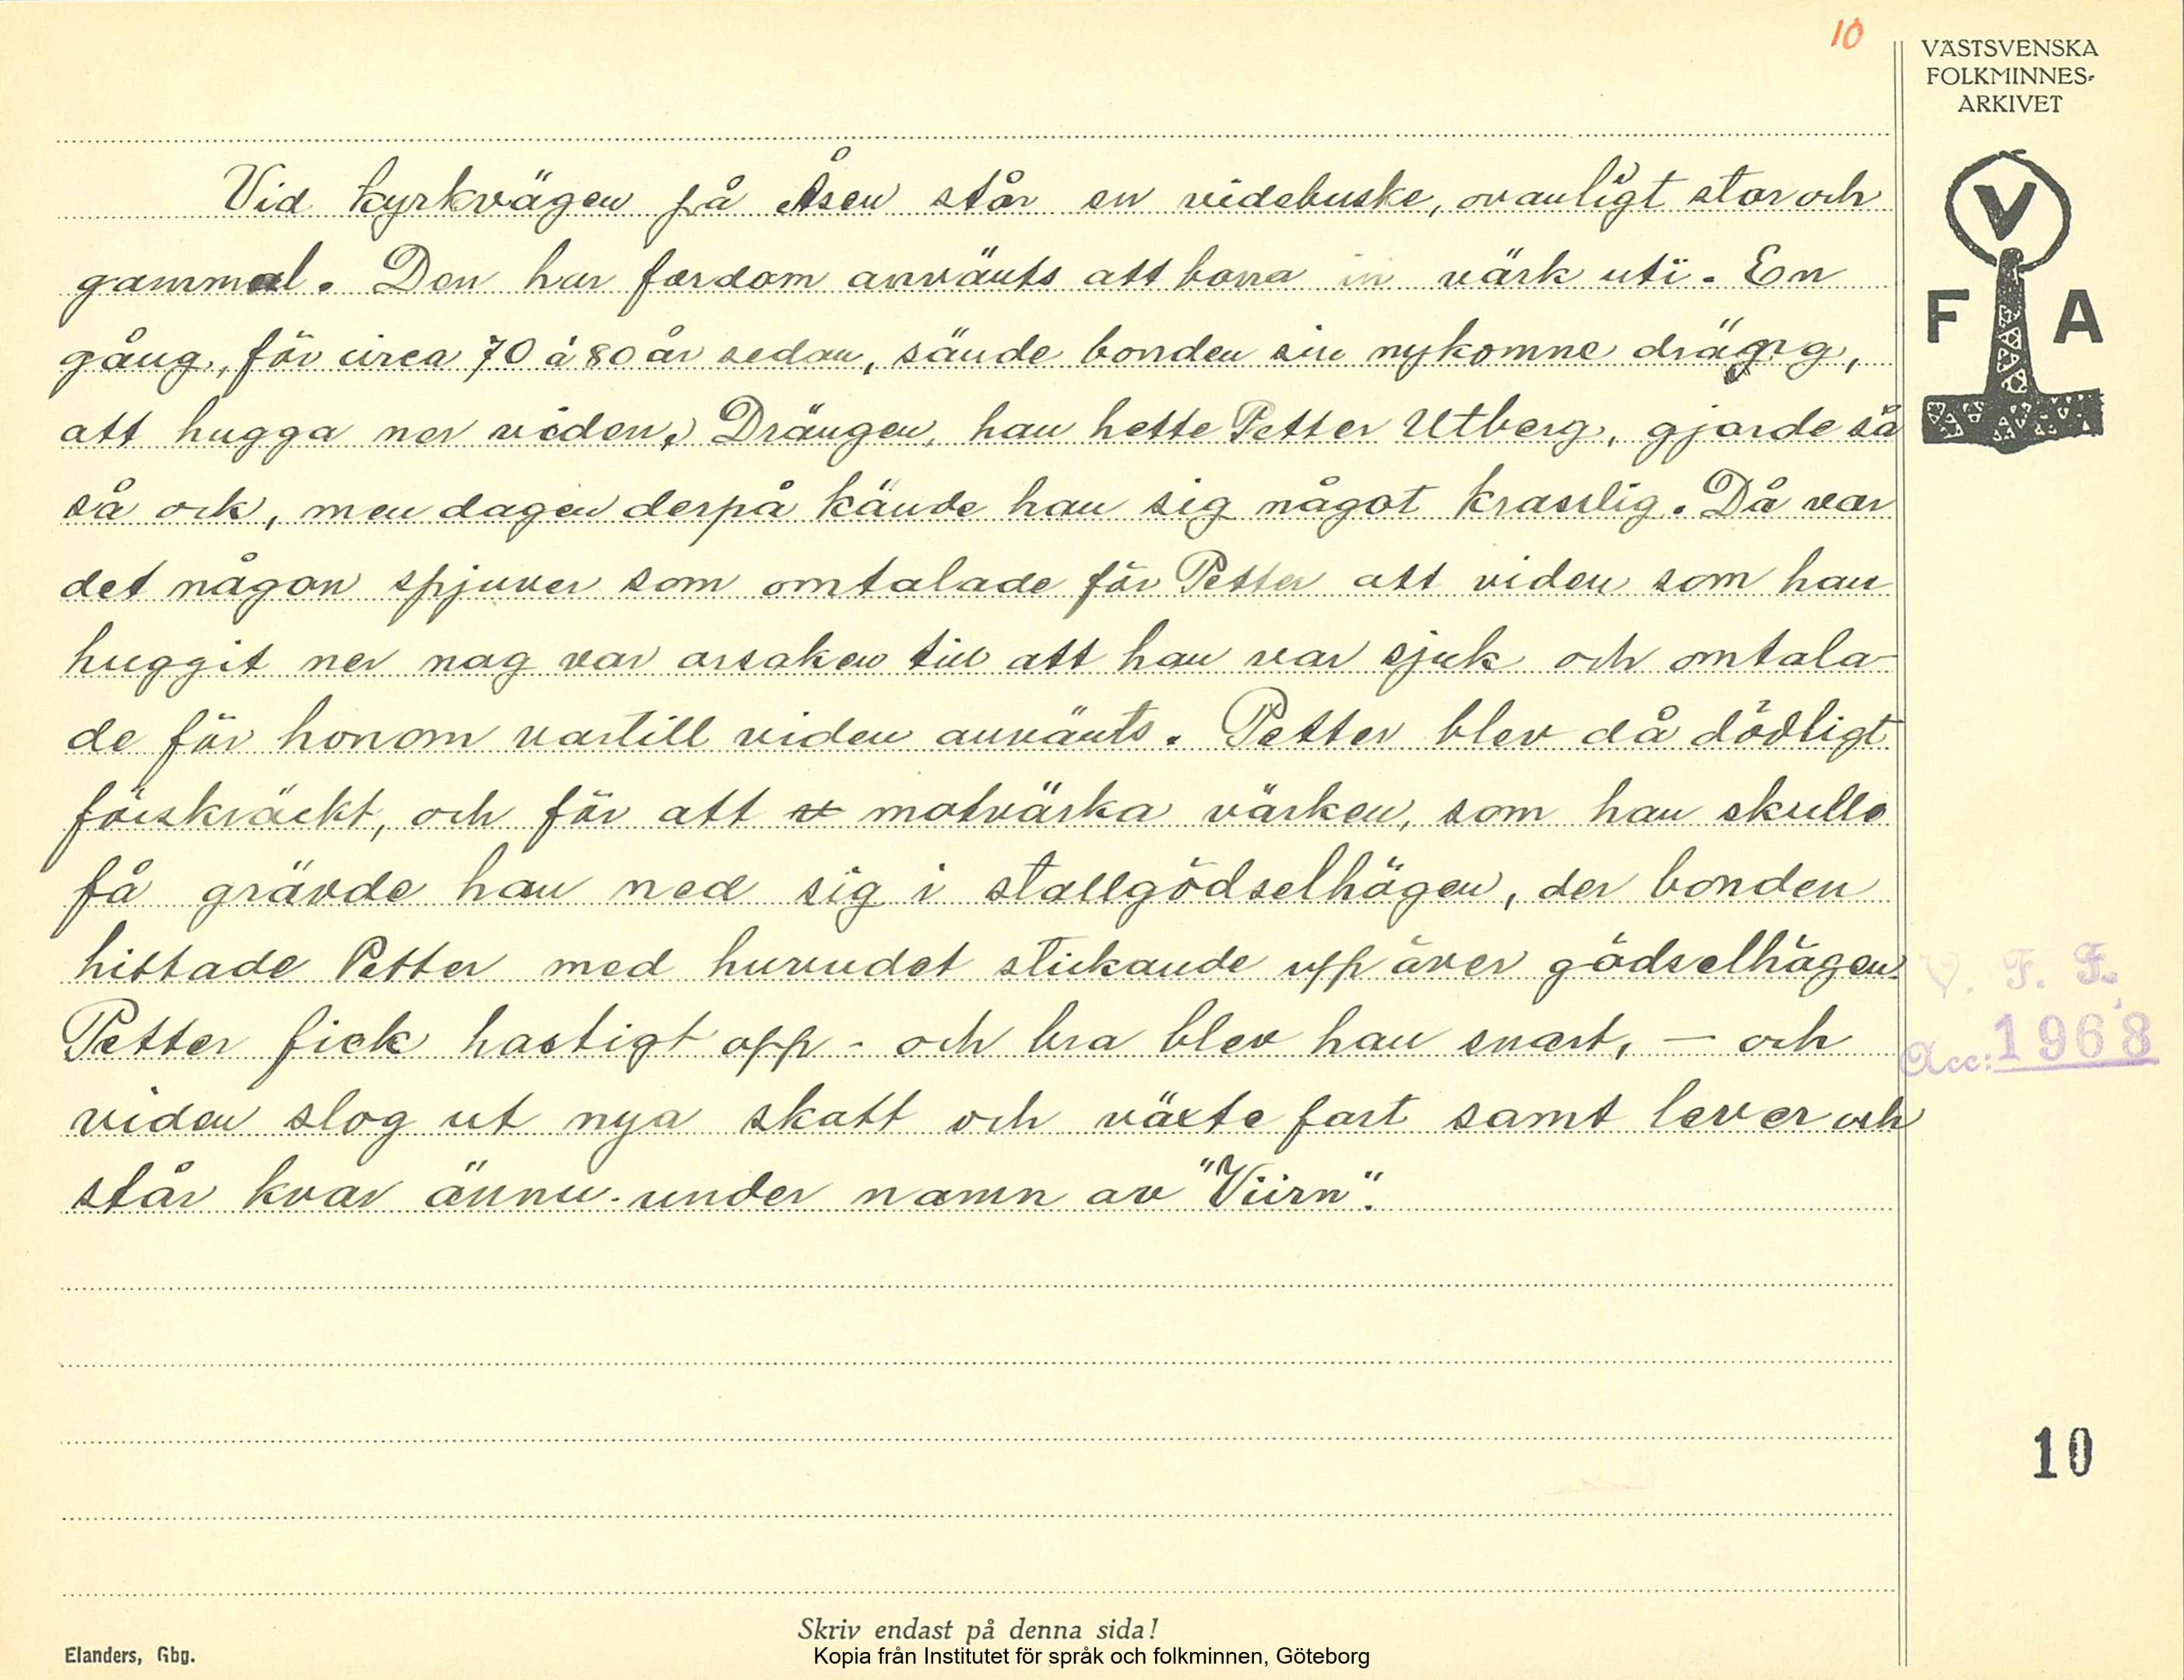 10
VÄSTSVENSKA
FOLKMINNES-
ARKIVET
V
F A
Vid kyrkvägen på Åsen står en videbuske, ovanligt stor och
gammal. Den har fordom använts att borra in värk uti. En
gång, för circa 70 à 80 år sedan, sände bonden sin nykomne dräng,
att hugga ner viden, Drängen, han hette Petter Utberg, gjorde så
så ock, men dagen derpå kände han sig något krasslig. Då var
det någon spjuver som omtalade för Petter att viden som han
huggit ner nog var orsaken till att han var sjuk och omtala-
de för honom vartill viden använts. Petter blev då dödligt
förskräckt, och för att motvärka värken, som han skulle
få grävde han ned sig i stallgödselhögen, der bonden
hittade Petter med huvudet stickande upp över gödselhögen.
Petter fick hastigt opp - och bra blev han snart, — och
viden slog ut nya skott och växte fort samt lever och
står kvar ännu. under namn av "Viirn".
V. F. F.
Acc: 1968
10
Skriv endast på denna sida!
Elanders, Gbg.
Kopia från Institutet för språk och folkminnen, Göteborg